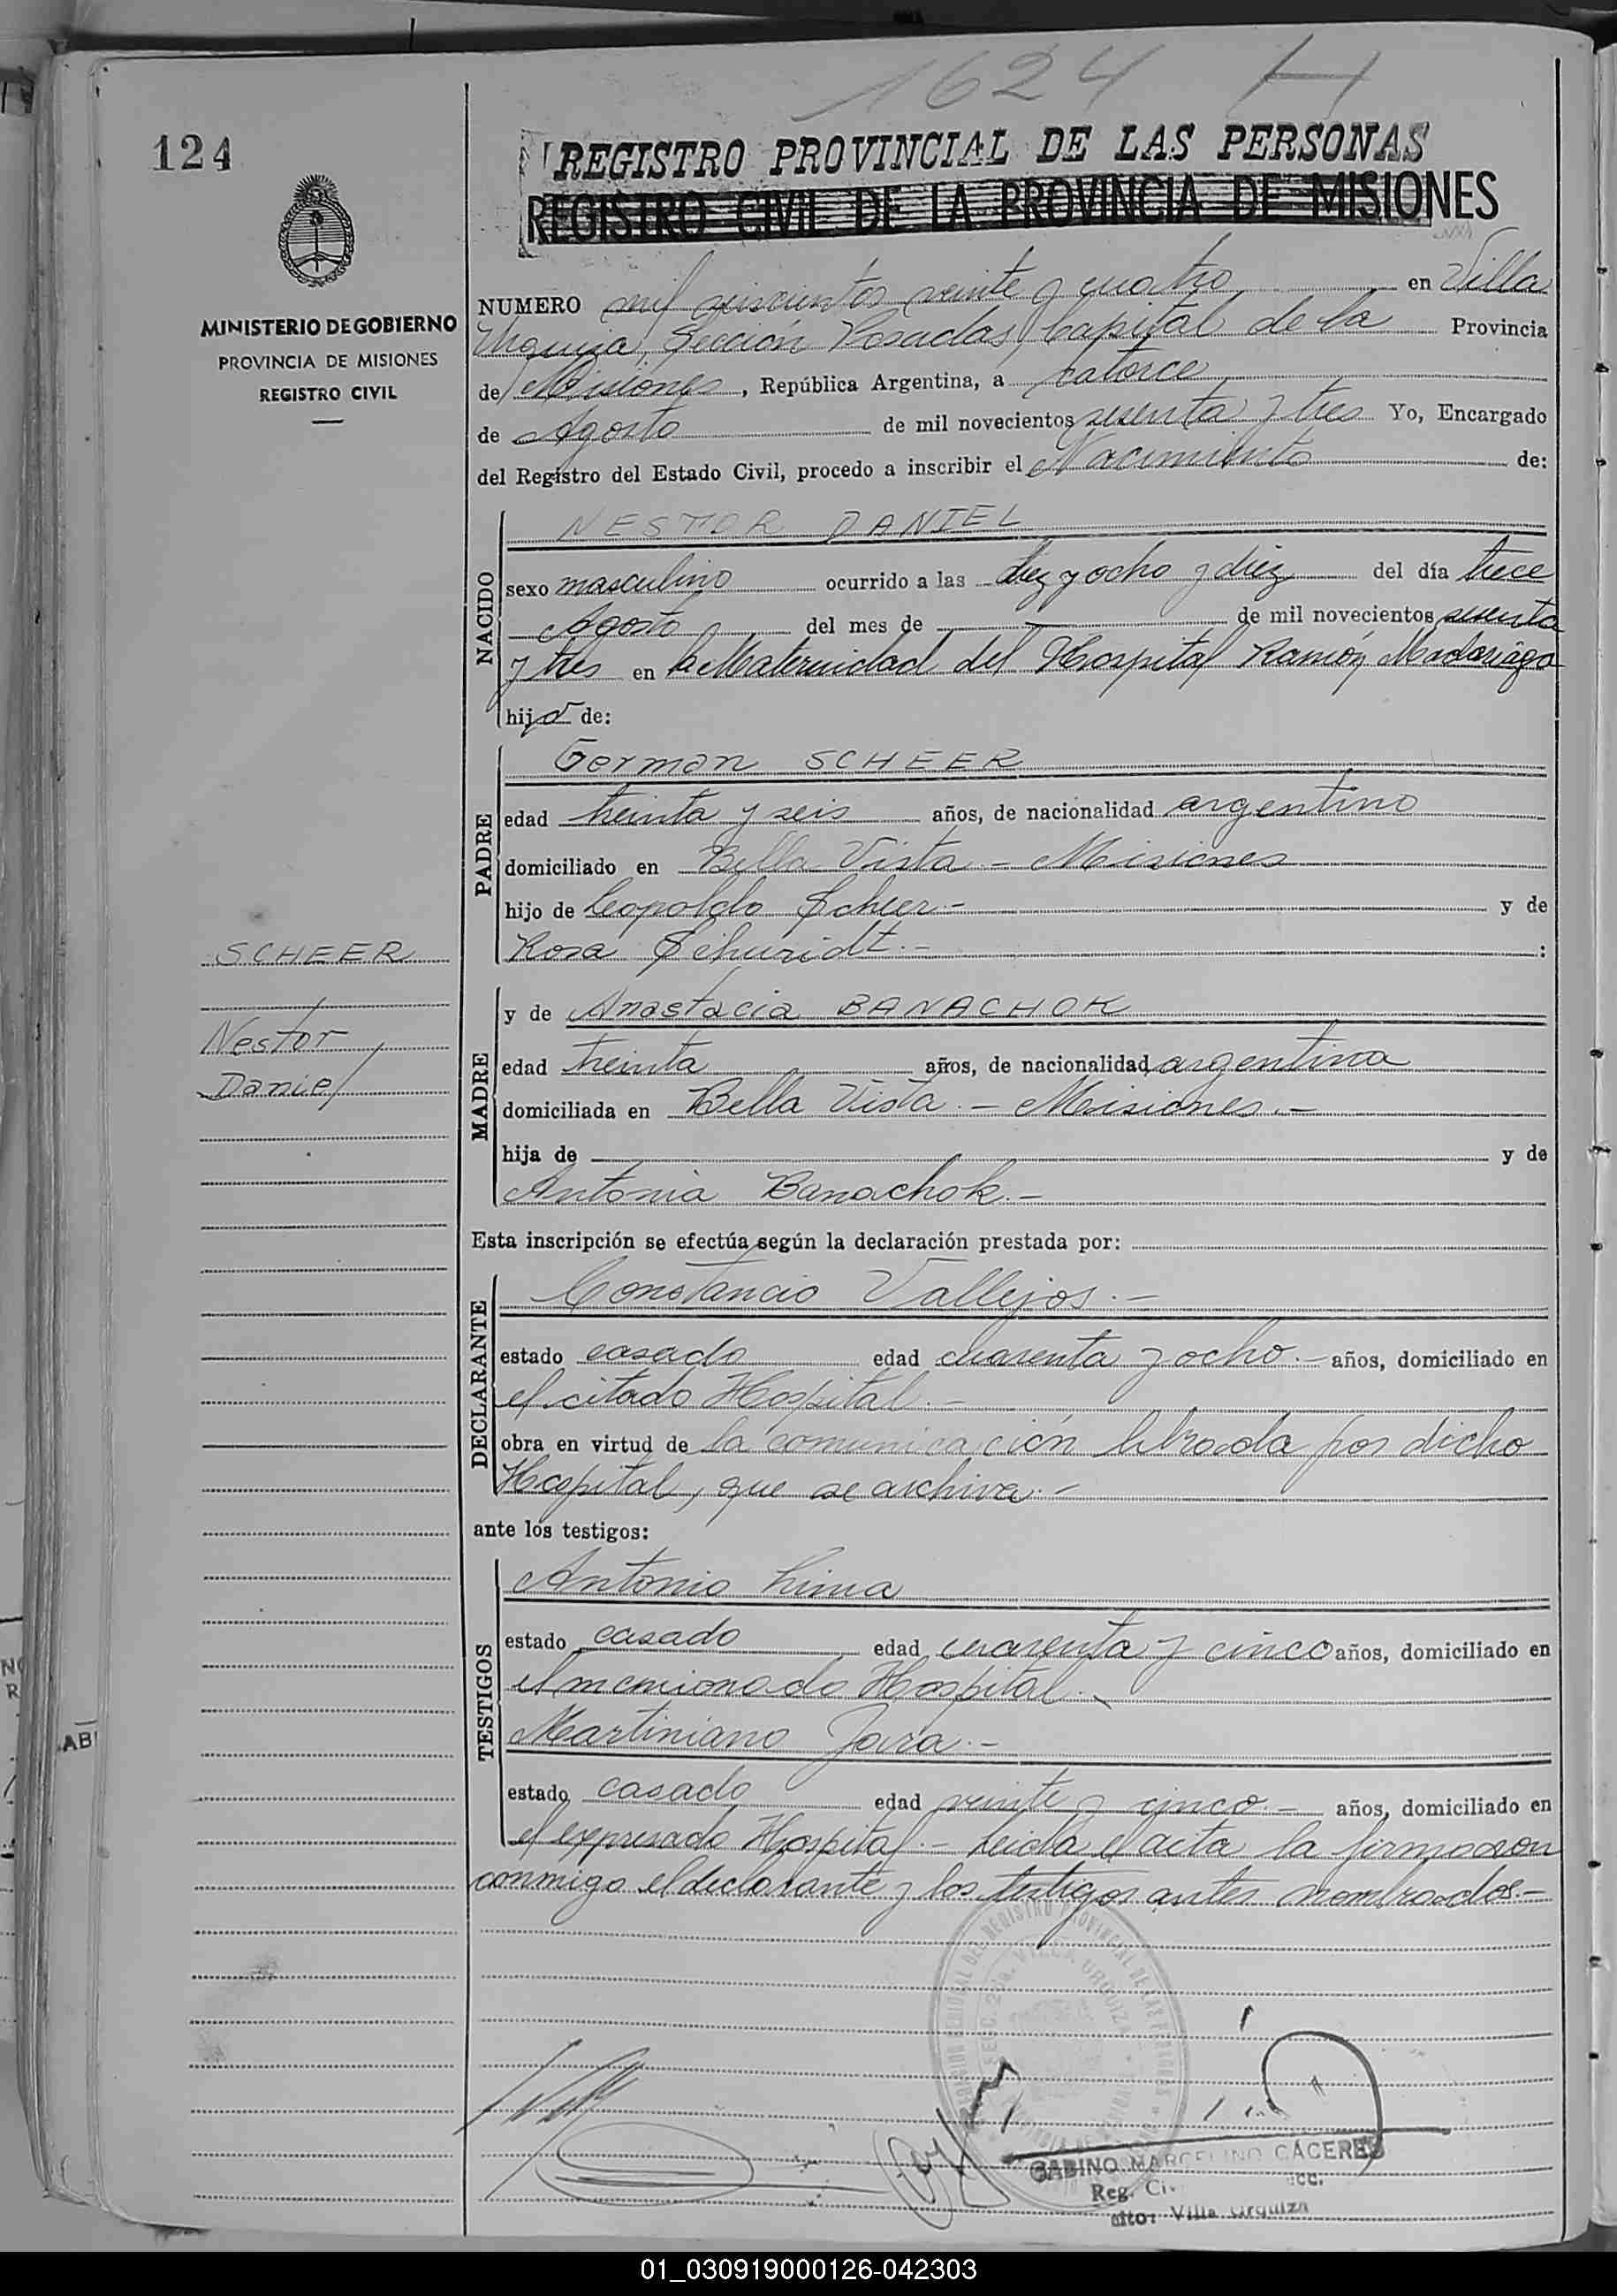 1624 H
124
REGISTRO PROVINCIAL DE LAS PERSONAS
REGISTRO CIVIL DE LA PROVINCIA DE MISIONES
MINISTERIO DE GOBIERNO
PROVINCIA DE MISIONES
REGISTRO CIVIL
NUMERO mil seiscientos veinte y cuatro en Villa
Urquiza, Sección Posadas, Capital de la Provincia
de Misiones, República Argentina, a catorce
de Agosto de mil novecientos sesenta y tres Yo, Encargado
del Registro del Estado Civil, procedo a inscribir el Nacimiento de:
NACIDO
NESTOR DANIEL
sexo masculino ocurrido a las diez y ocho y diez del día trece
Agosto del mes de — de mil novecientos sesenta
y tres en la Maternidad del Hospital Ramón Madariaga
hijo de:
PADRE
German SCHEER
edad treinta y seis años, de nacionalidad argentino
domiciliado en Bella Vista - Misiones
hijo de Leopoldo Scheer.- y de
Rosa Schmidt.- :
SCHEER
Nestor
Daniel
MADRE
y de Anastacia BANACHOK
edad treinta años, de nacionalidad argentina
domiciliada en Bella Vista.- Misiones.-
hija de — y de
Antonia Banachok.-
Esta inscripción se efectúa según la declaración prestada por:
DECLARANTE
Constancio Vallejos.-
estado casado edad cuarenta y ocho.- años, domiciliado en
el citado Hospital.-
obra en virtud de la comunicación librada por dicho
Hospital, que se archiva.-
ante los testigos:
TESTIGOS
Antonio Lima
estado casado edad cuarenta y cinco años, domiciliado en
el mencionado Hospital.
Martiniano Jara.-
estado casado edad veinte y cinco.- años, domiciliado en
el expresado Hospital.- Leida el acta la firmaron
conmigo el declarante y los testigos antes nombrados.-
GABINO MARCELINO CÁCERES
Reg. Ci
Villa Urquiza
01_030919000126-042303